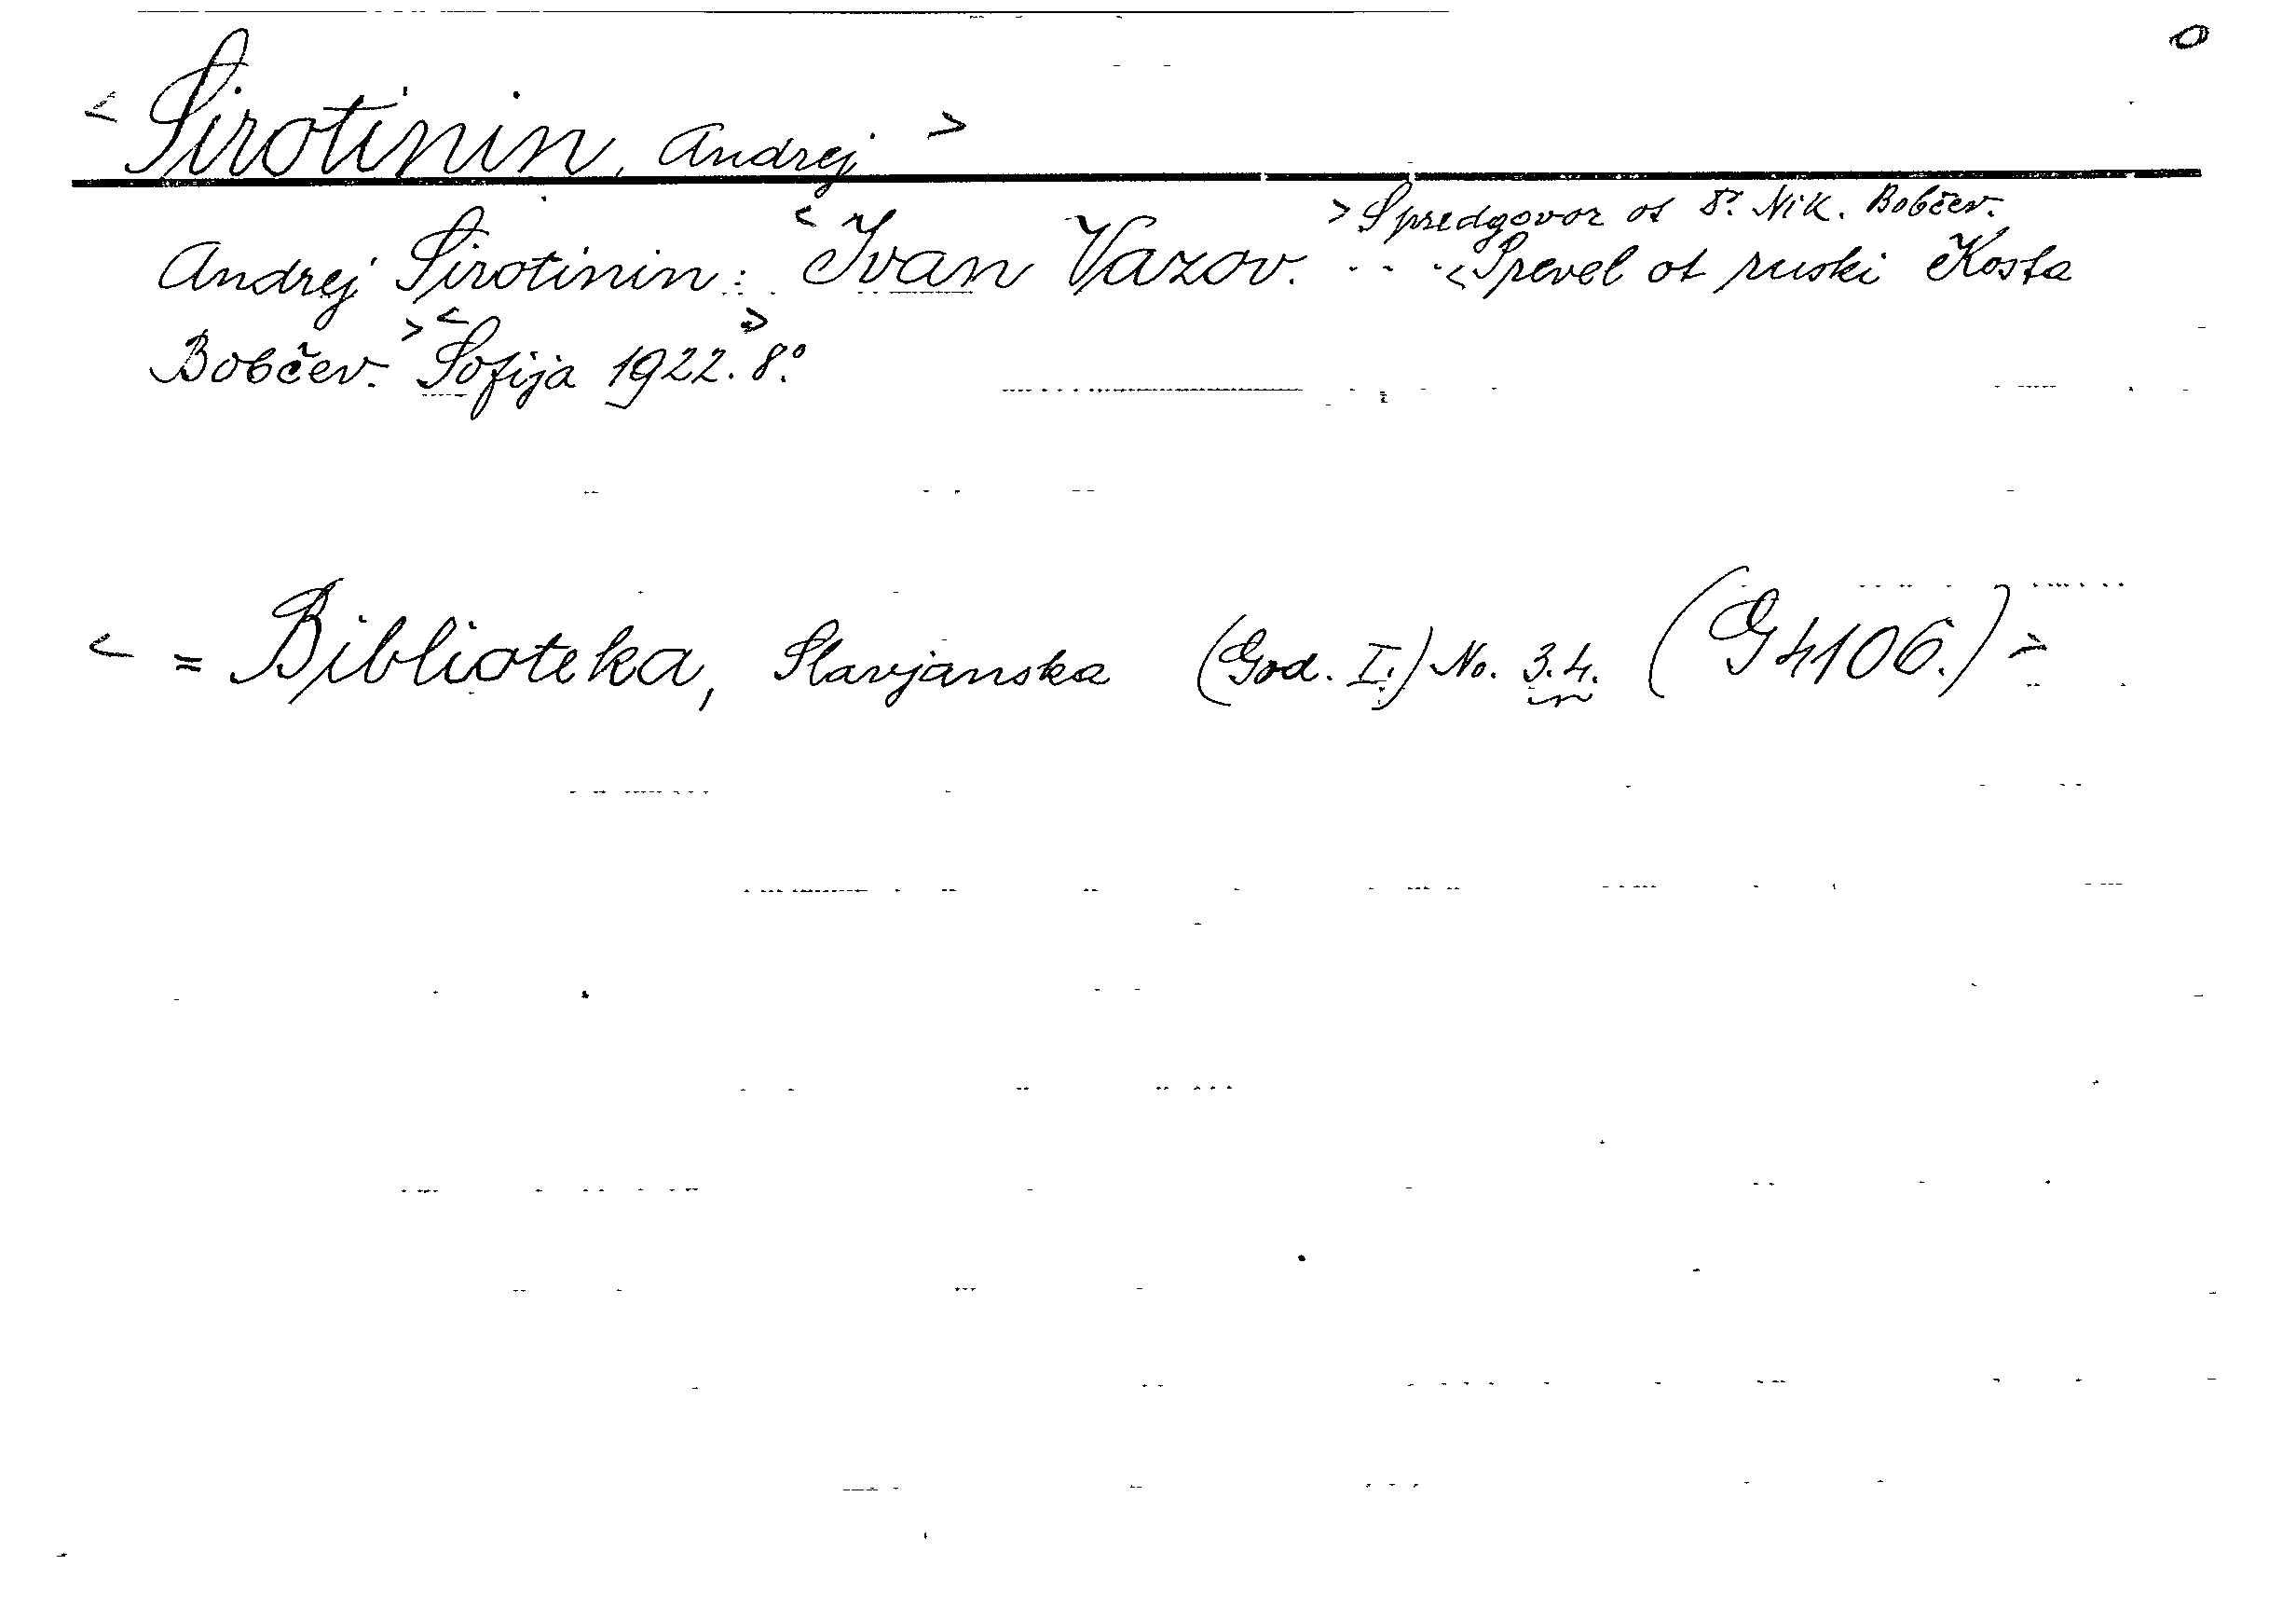 < Sirotinin, Andrej >
> S predgovor ot Nik. Bobčev.
Andrej Sirotinin: < Ivan Vazov. . . . < Prevel ot ruski Kosta
Bobčev. > < Sofija 1922. > 8.°
< = Biblioteka, Slavjanska (God. I.) No. 3.4. (G 4106.) >